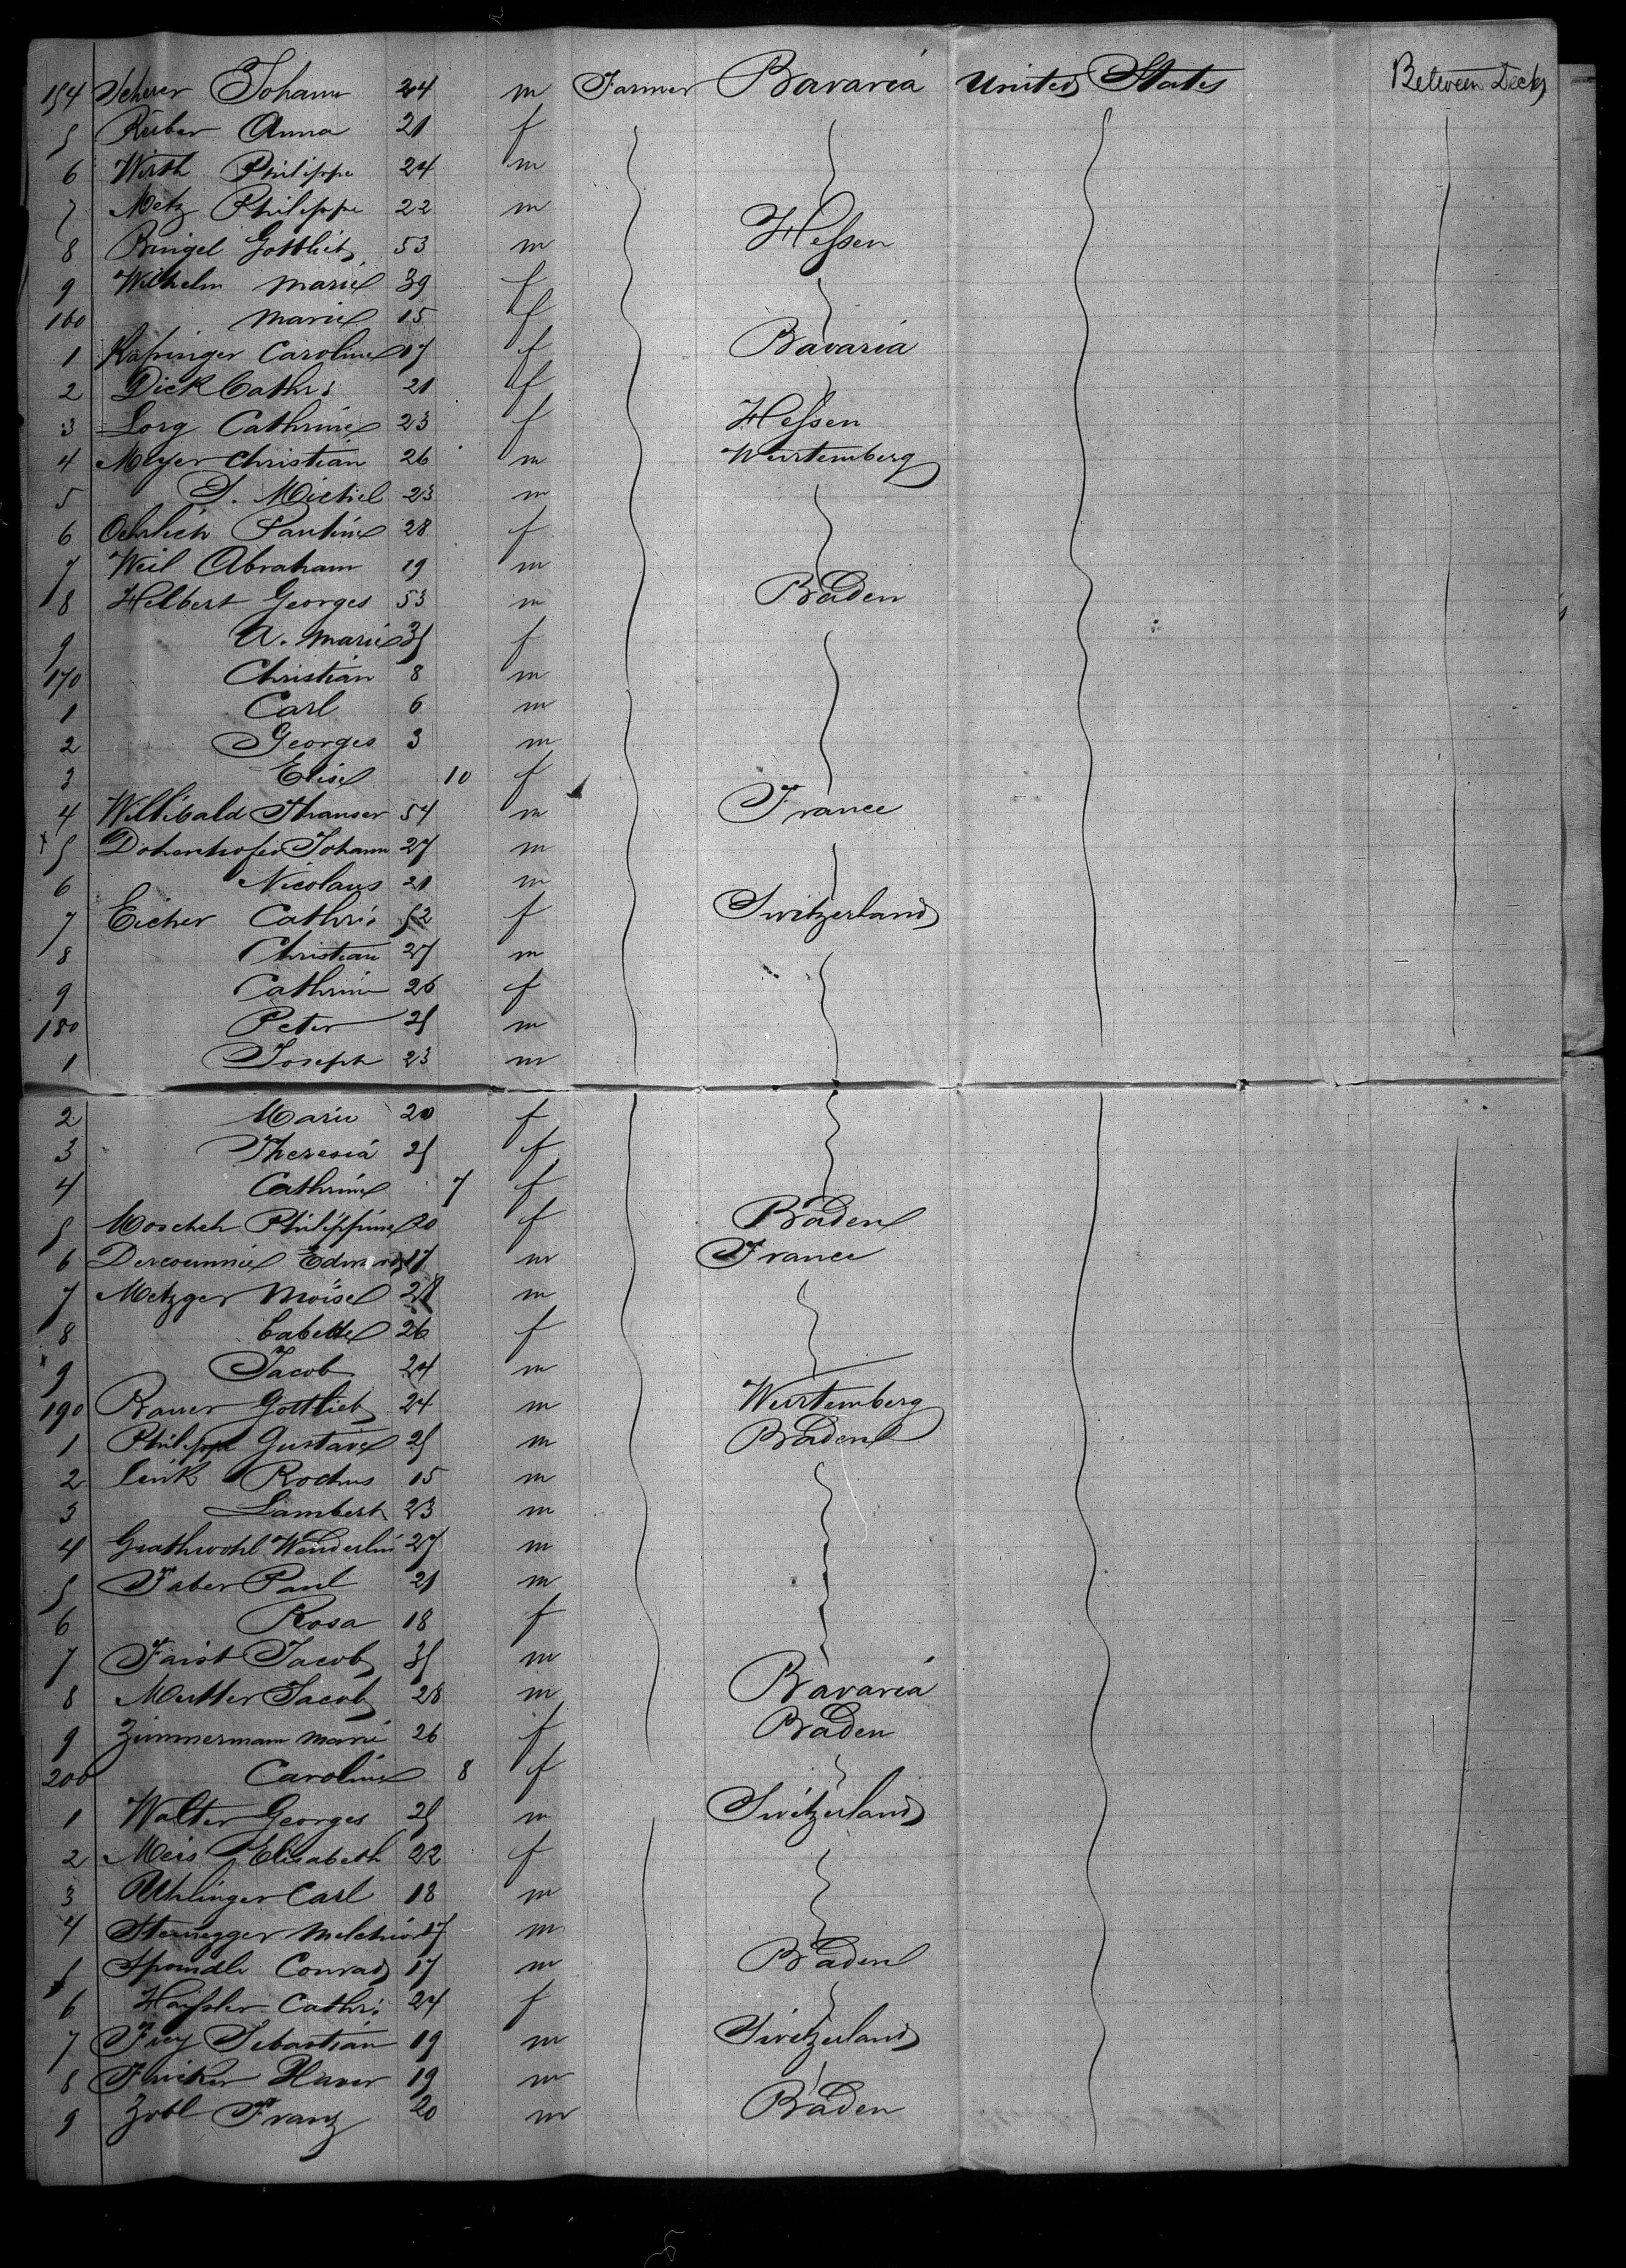 154 Scherer Johann 24 m Farmer Bavaria United States Between Decks
5 Reiber Anna 21 f
6 Wirth Philippe 24 m
7 Metz Philippe 22 m
8 Bingel Gottlieb 53 m Hessen
9 Wilhelm Marie 39 f
160 Marie 15 f
1 Caroline 17 f Bavaria
2 Dick Cathr: 21 f
3 Lorg Cathrine 23 f Hessen
4 Meyer Christian 26 m Wurtemberg
5 Michel 23 m
6 Oehrlich Pauline 28 f
7 Weil Abraham 19 m
8 Helbert Georges 53 m Baden
9 A. Marie 35 f
170 Christian 8 m
1 Carl 6 m
2 Georges 3 m
3 Elise 10 f
4 Willibald Thanser 54 m France
5 Johann 27 m
6 Nicolaus 21 m
7 Eicher Cathri: 52 f Switzerland
8 Christian 27 m
9 Cathrine 26 f
180 Peter 25 m
1 Joseph 23 m
2 Marie 20 f
3 Theresia 25 f
4 Cathrine 7 f
5 Philippine 20 f Baden
6 Edward 17 m France
7 Metzger Moise 28 m
8 Babette 26 f
9 Jacob 24 m
190 Bauer Gottlieb 24 m Wurtemberg
1 Philippe Gustave 25 m Baden
2 Link Rochus 15 m
3 Lambert 23 m
4 Grathwohl Wenderlin 27 m
5 Faber Paul 21 m
6 Rosa 18 f
7 Faist Jacob 35 m
8 Mutter Jacob 28 m Bavaria
9 Zimmermann Marie 26 f Baden
200 Caroline 8 f
1 Walter Georges 25 m Switzerland
2 Meis Elisabeth 22 f
3 Uhlinger Carl 18 m
4 Sternegger Melchior 17 m
5 Conrad 17 m Baden
6 Haissler Cathr: 24 f
7 Frey Sebastian 19 m Switzerland
8 Fricker Xaver 19 m
9 Zobl Franz 20 m Baden